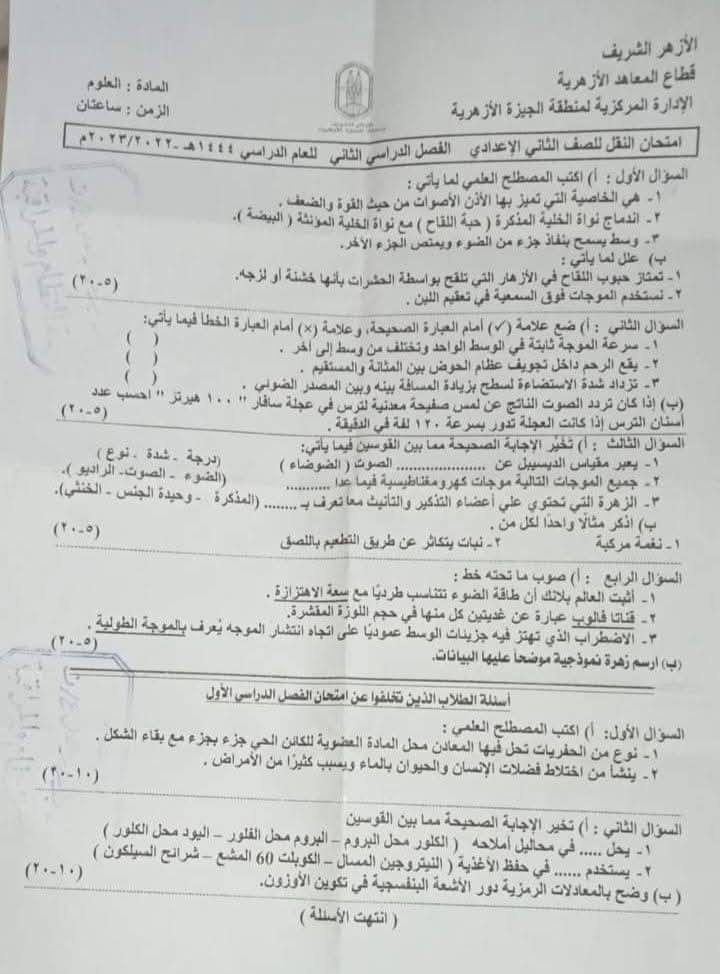 الأزهر الشريف
قطاع المعاهد الأزهرية
الإدارة المركزية لمنطقة الجيزة الأزهرية
المادة : العلوم
الزمن : ساعتان
امتحان النقل للصف الثاني الإعدادي الفصل الدراسي الثاني للعام الدراسي ١٤٤٤هـ -٢٠٢٣/٢٠٢٢م
السؤال الأول : أ) اكتب المصطلح العلمي لما يأتي :
١- هي الخاصية التي تميز بها الأذن الأصوات من حيث القوة والضعف .
٢- اندماج نواة الخلية المذكرة ( حبة اللقاح ) مع نواة الخلية المؤنثة ( البيضة ).
٣- وسط يسمح بنفاذ جزء من الضوء ويمتص الجزء الآخر.
ب) علل لما يأتي :
١- تمتاز حبوب اللقاح في الأزهار التي تلقح بواسطة الحشرات بأنها خشنة أو لزجه.
٢- نستخدم الموجات فوق السمعية في تعقيم اللبن . (٥-٢٠)
السؤال الثاني : أ) ضع علامة (✓) أمام العبارة الصحيحة، وعلامة (×) أمام العبارة الخطأ فيما يأتي:
١- سرعة الموجة ثابتة في الوسط الواحد وتختلف من وسط إلى آخر . ( )
٢- يقع الرحم داخل تجويف عظام الحوض بين المثانة والمستقيم . ( )
٣- تزداد شدة الاستضاءة لسطح بزيادة المسافة بينه وبين المصدر الضوئي . ( )
(ب) إذا كان تردد الصوت الناتج عن لمس صفيحة معدنية لترس في عجلة سافار " ١٠٠ هيرتز " احسب عدد
أسنان الترس إذا كانت العجلة تدور بسرعة ١٢٠ لفة في الدقيقة . (٥-٢٠)
السؤال الثالث : أ) تخيّر الإجابة الصحيحة مما بين القوسين فيما يأتي:
١- يعبر مقياس الديسيبل عن .................... الصوت ( الضوضاء ) (درجة - شدة - نوع )
٢- جميع الموجات التالية موجات كهرومغناطيسية فيما عدا .......... (الضوء - الصوت- الراديو ).
٣- الزهرة التي تحتوي علي أعضاء التذكير والتأنيث معا تعرف بـ ........ (المذكرة - وحيدة الجنس - الخنثي).
ب) اذكر مثالا واحدًا لكل من .
١- نغمة مركبة ٢- نبات يتكاثر عن طريق التطعيم باللصق (٥-٢٠)
السؤال الرابع : أ) صوب ما تحته خط :
١- أثبت العالم بلانك أن طاقة الضوء تتناسب طرديًا مع سعة الاهتزازة .
٢- قناتا فالوب عبارة عن غديتين كل منها في حجم اللوزة المقشرة.
٣- الاضطراب الذي تهتز فيه جزيئات الوسط عموديًا على اتجاه انتشار الموجه يُعرف بالموجة الطولية .
(ب) ارسم زهرة نموذجية موضحاً عليها البيانات. (٥-٢٠)
أسئلة الطلاب الذين تخلفوا عن امتحان الفصل الدراسي الأول
السؤال الأول: أ) اكتب المصطلح العلمي :
١- نوع من الحفريات تحل فيها المعادن محل المادة العضوية للكائن الحي جزء بجزء مع بقاء الشكل .
٢- ينشأ من اختلاط فضلات الإنسان والحيوان بالماء ويسبب كثيرًا من الأمراض . (١٠-٢٠)
السؤال الثاني : أ) تخير الإجابة الصحيحة مما بين القوسين
١- يحل ..... في محاليل أملاحه ( الكلور محل البروم – البروم محل الفلور - اليود محل الكلور )
٢- يستخدم ...... في حفظ الأغذية ( النيتروجين المسال – الكوبلت 60 المشع – شرائح السيلكون )
( ب) وضح بالمعادلات الرمزية دور الأشعة البنفسجية في تكوين الأوزون. (١٠-٢٠)
( انتهت الأسئلة )